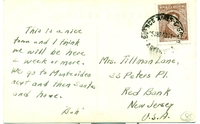 This is a nice
town and I think
we will be here
a week or more.
We go to Montevideo
next and then Santos
and home.
Bob
Mrs. Tillman Lane,
55 Peters Pl.
Red Bank
New Jersey
U.S.A.